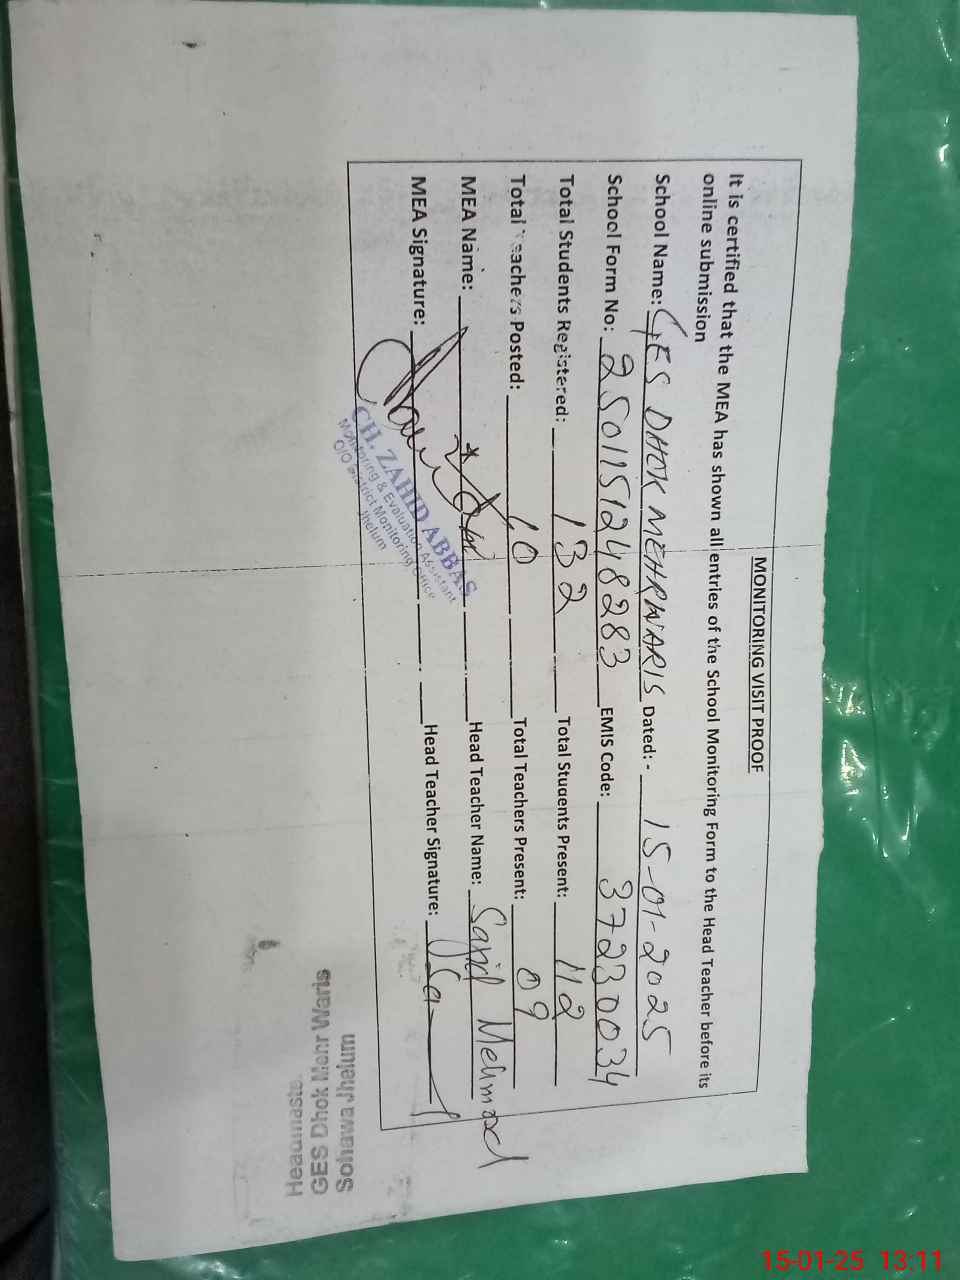 MONITORING VISIT PROOF
It is certified that the MEA has shown all entries of the School Monitoring Form to the Head Teacher before its
online submission
School Name: GES DHOK MEHRWARIS Dated: - 15-01-2025
School Form No: 2501151248283 EMIS Code: 37230034
Total Students Registered: 132 Total Students Present: 112
Total Teachers Posted: 10 Total Teachers Present: 09
MEA Name: Head Teacher Name: Sajid Mehmood
MEA Signature: Head Teacher Signature:
CH. ZAHID ABBAS
Monitoring & Evaluation Assistant
O/O District Monitoring Office
Jhelum
Headmaster
GES Dhok Mehr Waris
Sohawa Jhelum
15-01-25 13:11